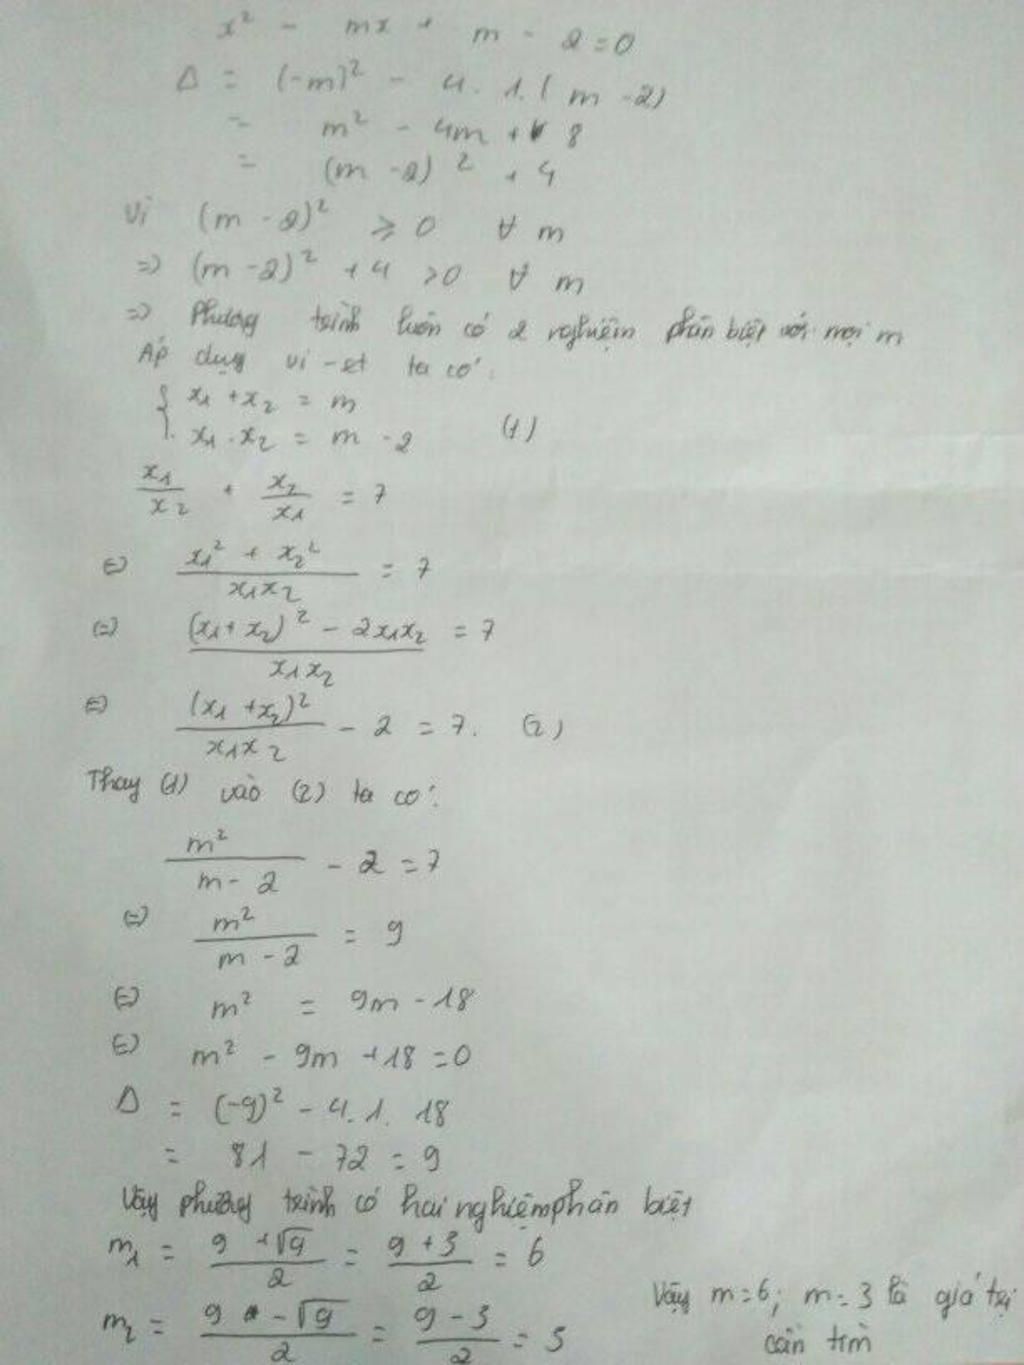 x² - mx + m - 2 = 0
Δ = (-m)² - 4.1.(m - 2)
= m² - 4m + 8
= (m - 2)² + 4
Vì (m - 2)² ⩾ 0 ∀ m
=> (m - 2)² + 4 > 0 ∀ m
=> Phương trình luôn có 2 nghiệm phân biệt với mọi m
Áp dụng vi-et ta có:
{ x₁ + x₂ = m
x₁ . x₂ = m - 2 (1)
x₁/x₂ + x₂/x₁ = 7
<=> (x₁² + x₂²)/(x₁x₂) = 7
<=> ((x₁ + x₂)² - 2x₁x₂)/(x₁x₂) = 7
<=> (x₁ + x₂)²/(x₁x₂) - 2 = 7. (2)
Thay (1) vào (2) ta có:
m²/(m - 2) - 2 = 7
<=> m²/(m - 2) = 9
<=> m² = 9m - 18
<=> m² - 9m + 18 = 0
Δ = (-9)² - 4.1.18
= 81 - 72 = 9
Vậy phương trình có hai nghiệm phân biệt
m₁ = (9 + √9)/2 = (9 + 3)/2 = 6
m₂ = (9 - √9)/2 = (9 - 3)/2 = 3
Vậy m = 6; m = 3 là giá trị
cần tìm